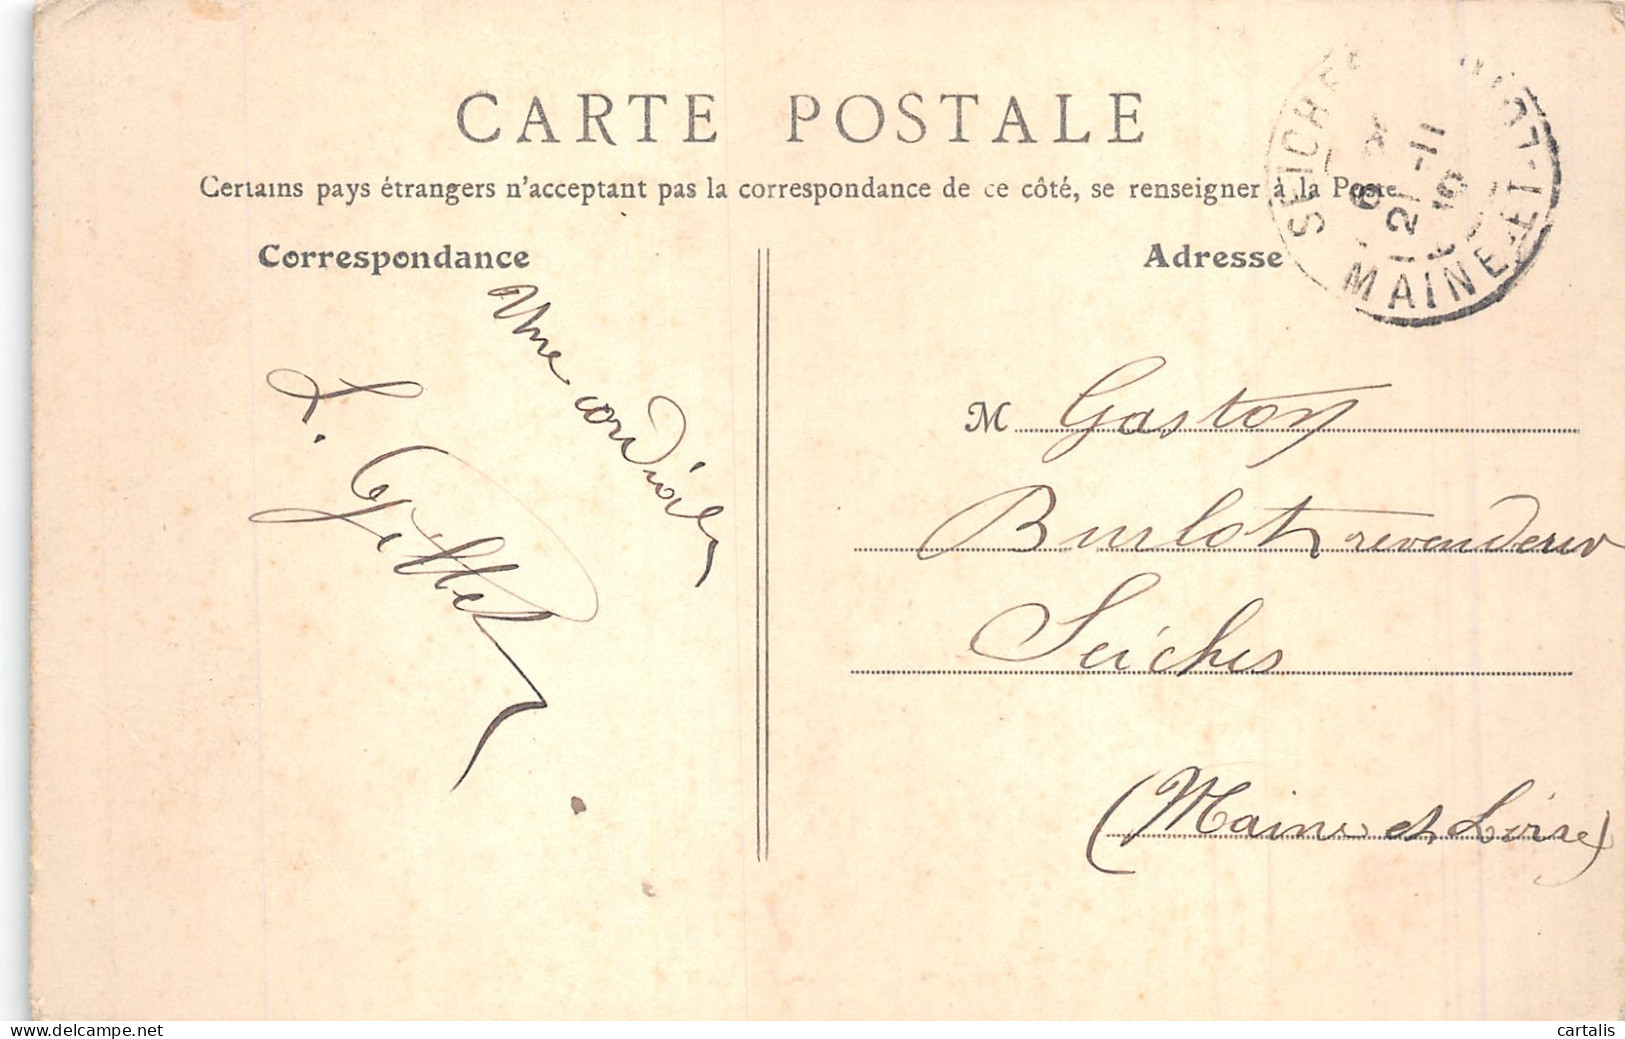 CARTE POSTALE
Certains pays étrangers n'acceptant pas la correspondance de ce côté, se renseigner à la Poste
Correspondance
Adresse
SEICHES
MAINE-ET-L
21-11
M Gaston
Burlot revendeur
Seiches
(Maine et Loire)
L. Gillet
www.delcampe.net
cartalis